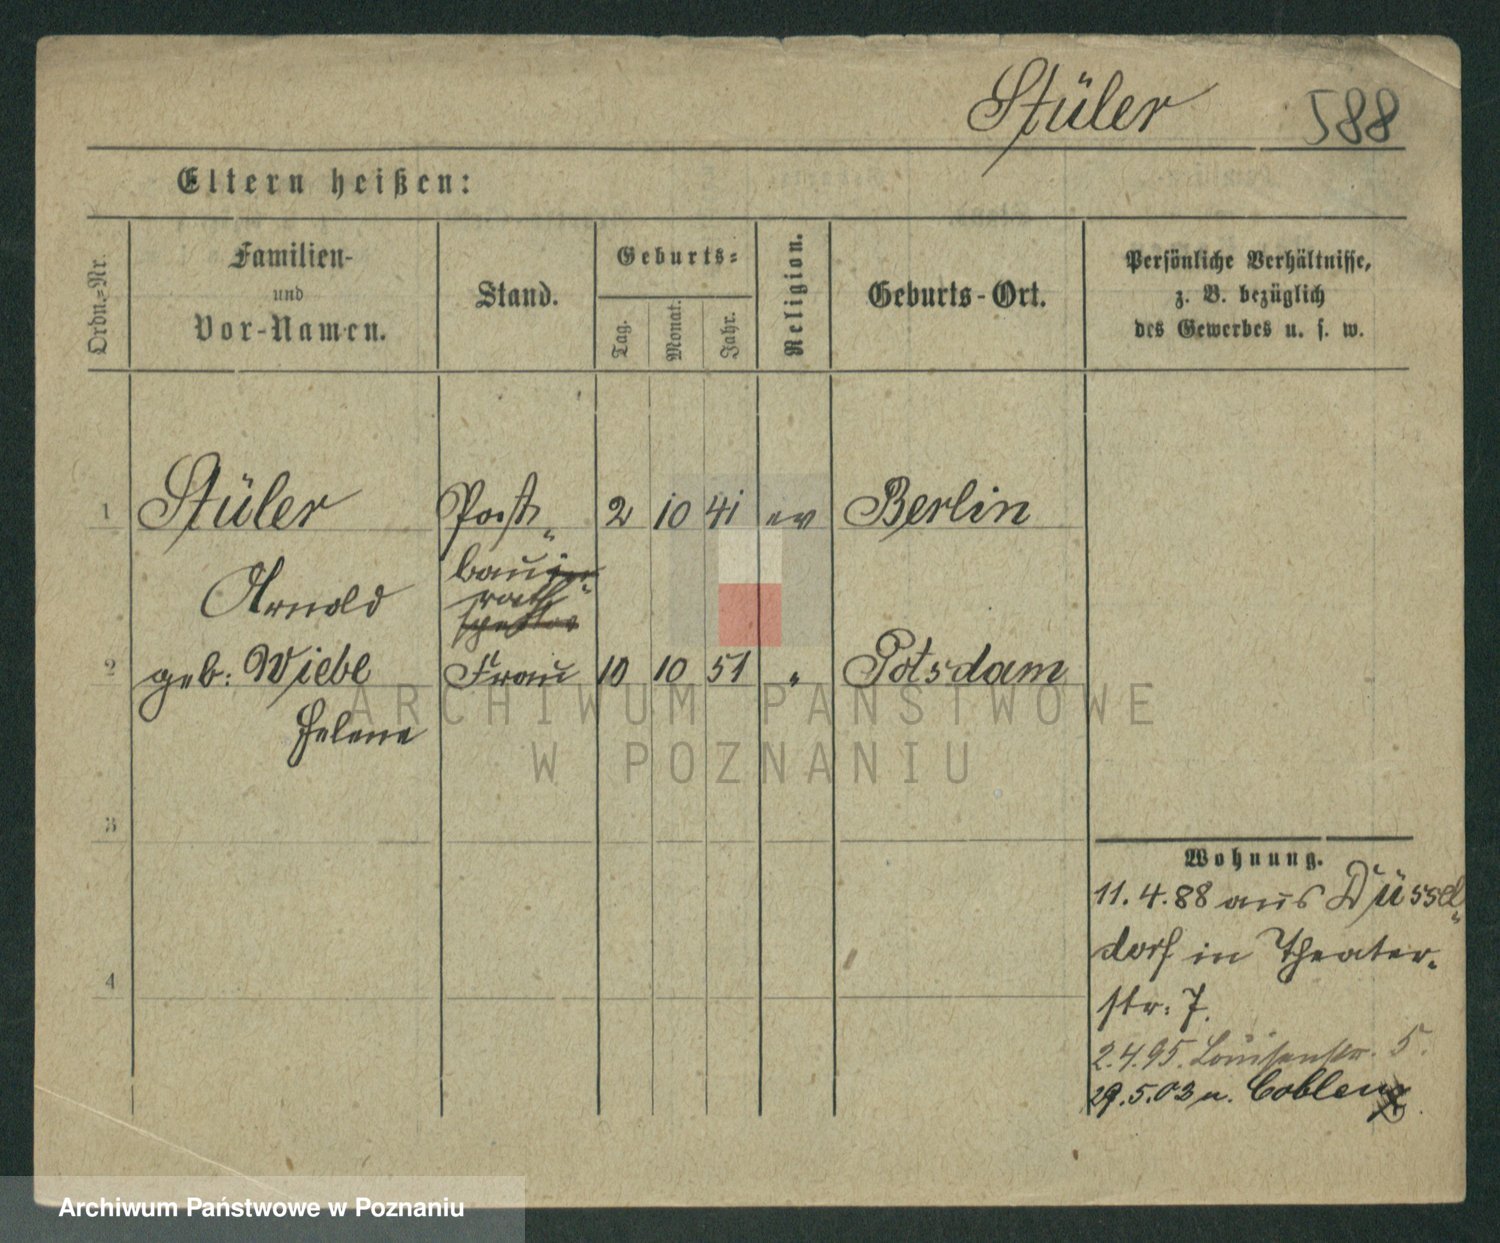 Stüler 588
Eltern heißen:
Ordn.-Nr.
Familien-
und
Vor-Namen.
Stand.
Geburts-
Tag.
Monat.
Jahr.
Religion.
Geburts-Ort.
Persönliche Verhältnisse,
z. B. bezüglich
des Gewerbes u. s. w.
1 Stüler Post- 2 10 41 ev Berlin
bauin-
Arnold rath
spektor
2 geb: Wiebe Frau 10 10 51 " Potsdam
Helene
3
4
Wohnung.
11.4.88 aus Düssel-
dorf in Theater-
str. 7.
2.4.95. Louisenstr. 5.
29.5.03 n. Coblenz
ARCHIWUM PAŃSTWOWE
W POZNANIU
Archiwum Państwowe w Poznaniu